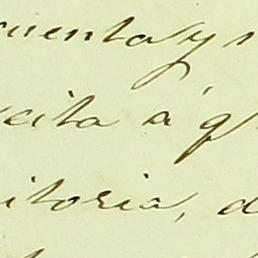 cuenta y
cita á q
itoria, d